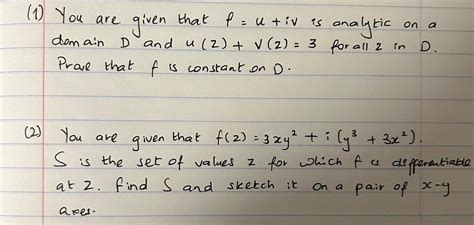 (1) You are given that f = u + iv is analytic on a
domain D and u(z) + v(z) = 3 for all z in D.
Prove that f is constant on D.
(2) You are given that f(z) = 3xy² + i(y³ + 3x²).
S is the set of values z for which f is differentiable
at z. Find S and sketch it on a pair of x-y
axes.